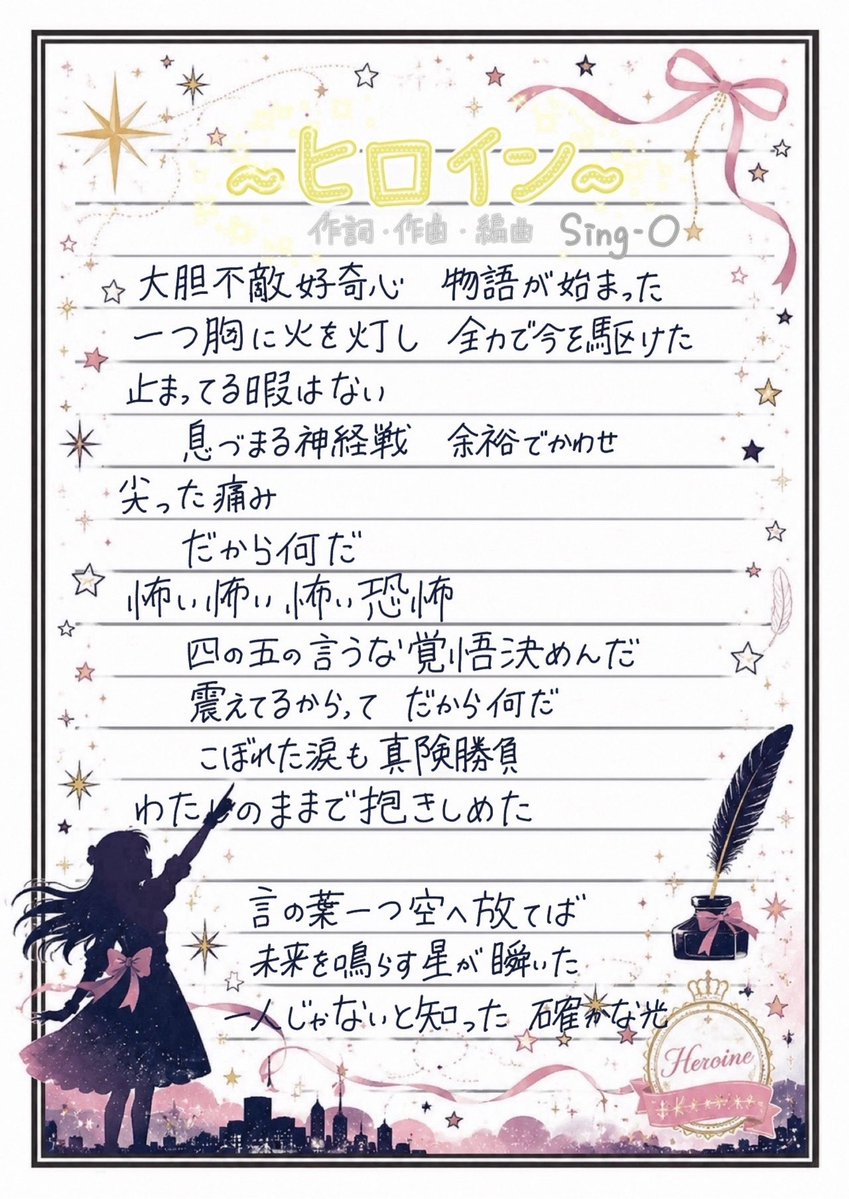 ～ヒロイン～
作詞・作曲・編曲 Sing-O
大胆不敵好奇心　物語が始まった
一つ胸に火を灯し　全力で今を駆けた
止まってる暇はない
息づまる神経戦　余裕でかわせ
尖った痛み
だから何だ
怖い怖い怖い恐怖
四の五の言うな覚悟決めんだ
震えてるからって　だから何だ
こぼれた涙も真険勝負
わたしのままで抱きしめた
言の葉一つ空へ放てば
未来を鳴らす星が瞬いた
一人じゃないと知った　確かな光
Heroine